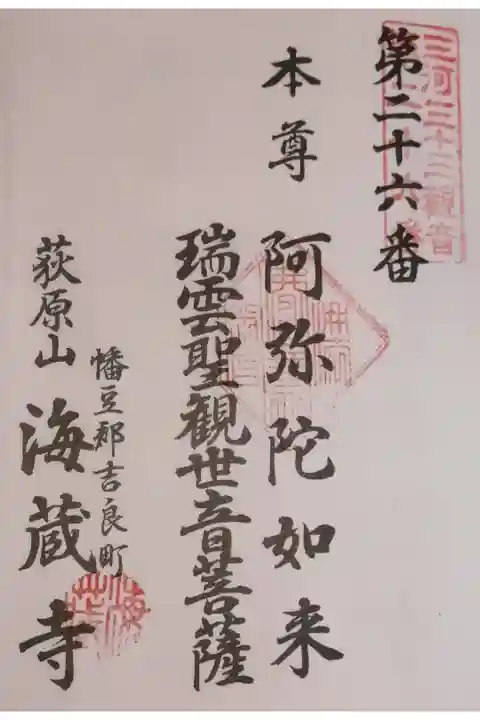 三河三十三觀音
二十六番
第二十六番
本尊
阿弥陀如来
瑞雲聖観世音菩薩
幡豆郡吉良町
荻原山
海蔵寺